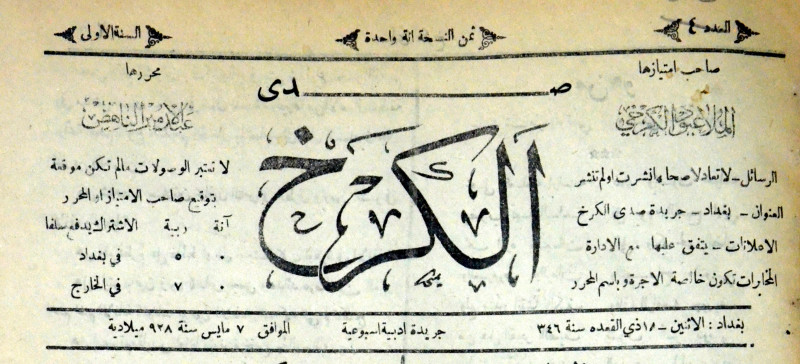 العدد ٤
ثمن النسخة انة واحدة
السنة الاولى
صاحب امتيازها
الملا عبود الكرخي
صدى
الكرخ
محررها
عبد الامير الناهض
الرسائل - لا تعاد لاصحابها نشرت او لم تنشر
العنوان - بغداد - جريدة صدى الكرخ
الاعلانات - يتفق عليها مع الادارة
المخابرات تكون خالصة الاجرة وباسم المحرر
لا تعتبر الوصولات مالم تكن موقعة
بتوقيع صاحب الامتياز او المحرر
آنة ربية الاشتراك يدفع سلفا
٠ ٥ في بغداد
٠ ٧ في الخارج
بغداد : الاثنين - ١٨ ذي القعده سنة ٣٤٦
جريدة ادبية اسبوعية
الموافق ٧ مايس سنة ٩٢٨ ميلادية